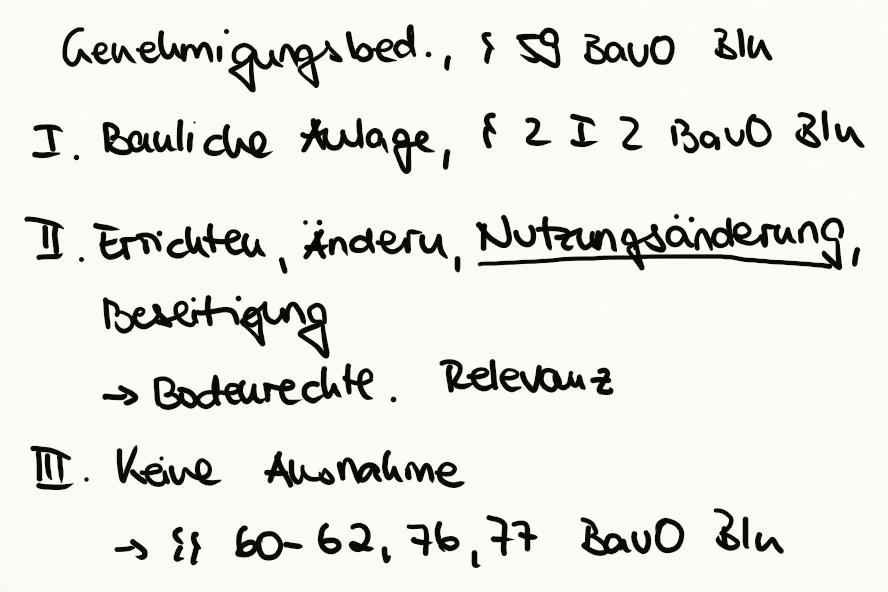 Genehmigungsbed., § 59 BauO Bln
I. Bauliche Anlage, § 2 I 2 BauO Bln
II. Errichten, Ändern, Nutzungsänderung,
Beseitigung
→ Bodenrechte. Relevanz
III. Keine Ausnahme
→ §§ 60-62, 76, 77 BauO Bln